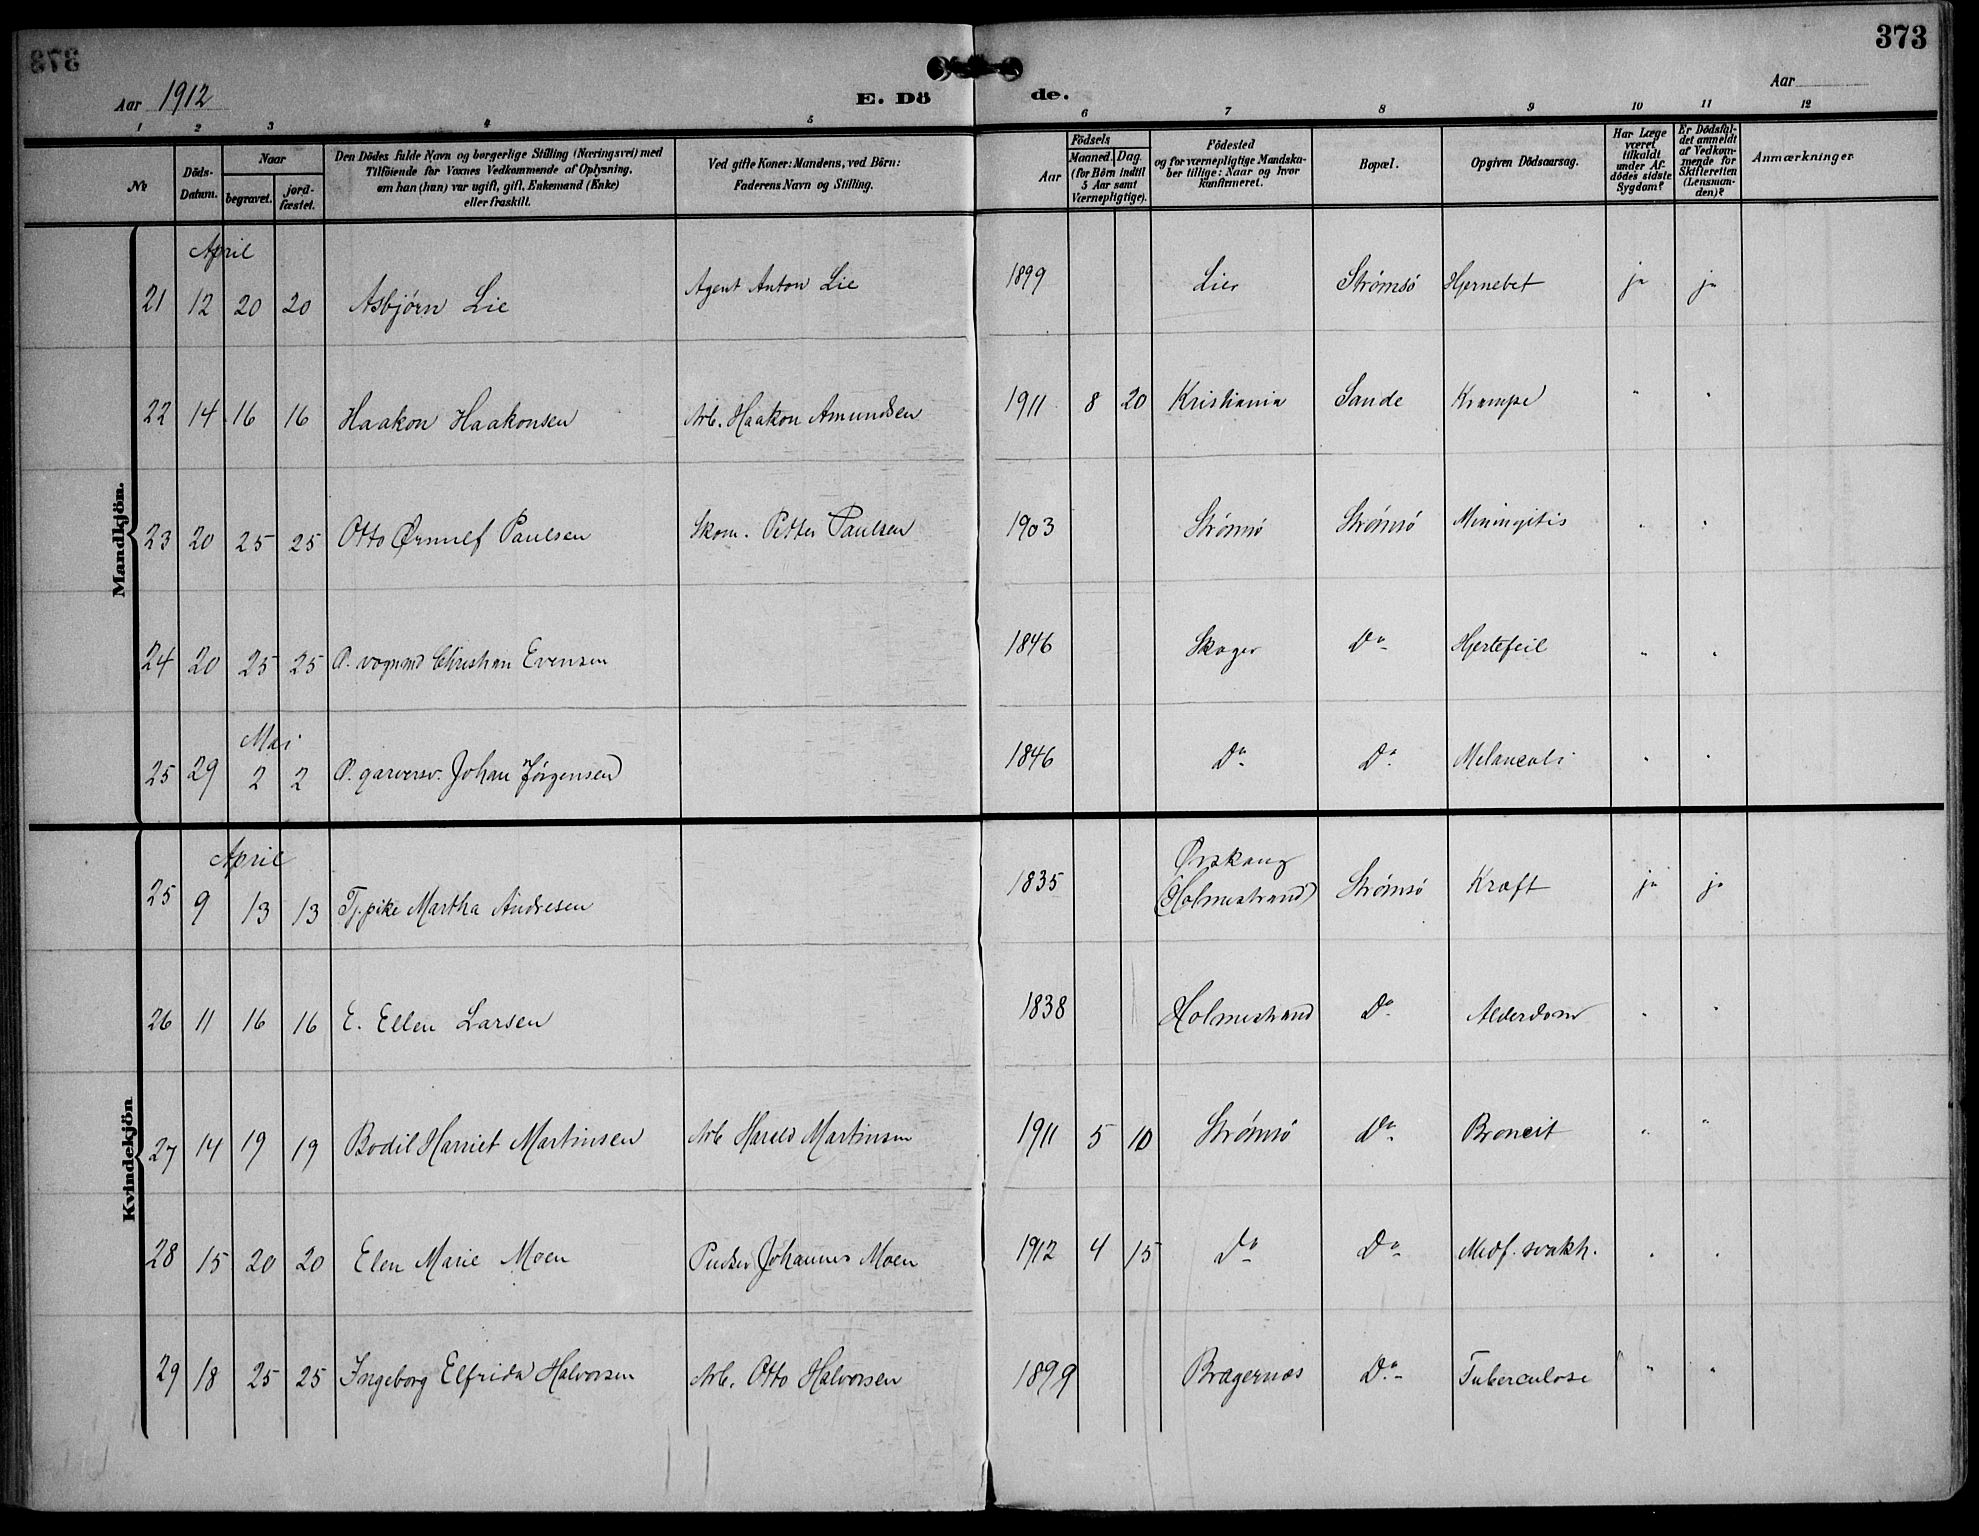 373
Aar 1912
E. Dö de.
Aar
1 2 3 4 5 6 7 8 9 10 11 12
№
Döds-Datum.
Naar
begravet.
jord-fæstet.
Den Dödes fulde Navn og borgerlige Stilling (Næringsvei) med
Tilföiende for Voxnes Vedkommende af Oplysning,
om han (hun) var ugift, gift, Enkemand (Enke)
eller fraskilt.
Ved gifte Koner: Mandens, ved Börn:
Faderens Navn og Stilling.
Födsels
Aar
Maaned. Dag.
(for Börn indtil
5 Aar samt
Værnepligtige).
Födested
og for værnepligtige Mandska-
ber tillige: Naar og hvor
konfirmeret.
Bopæl.
Opgiven Dödsaarsag.
Har Læge
været
tilkaldt
under Af-
dödes sidste
Sygdom?
Er Dödsfal-
det anmeldt
af Vedkom-
mende for
Skifteretten
(Lensman-
den)?
Anmærkninger
Mandkjön.
April
21 12 20 20 Asbjørn Lie Agent Anton Lie 1899 Lier Strømsö Hjernebet ja ja
22 14 16 16 Haakon Haakonsen Arb. Haakon Amundsen 1911 8 20 Kristiania Sande Krampe " "
23 20 25 25 Otto Ørnulf Paulsen Skom. Petter Paulsen 1903 Strømsö Strømsö Meningitis " "
24 20 25 25 P. vognmd Christian Evensen 1846 Skoger Do Hjertefeil " "
Mai
25 29 2 2 P. garversv. Johan Jørgensen 1846 Do Do Melancoli " "
Kvindekjön
April
25 9 13 13 Tj. pike Martha Andresen 1835 (Holmestrand) Strømsö Kræft ja ja
26 11 16 16 E. Ellen Larsen 1838 Holmestrand Do Alderdom " "
27 14 19 19 Bodil Harriet Martinsen Arb Harald Martinsen 1911 5 10 Strømsö Do Broncit " "
28 15 20 20 Elen Marie Moen Pudser Johannes Moen 1912 4 15 Do Do Medf. svakh. " "
29 18 25 25 Ingeborg Elfrida Halvorsen Arb. Otto Halvorsen 1899 Bragernæs Do Tuberculose " "